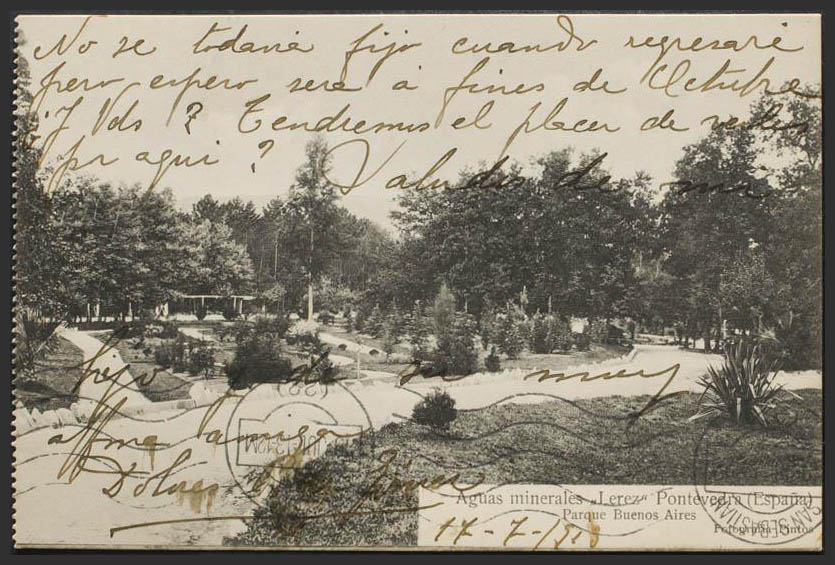 No se todavia fijo cuando regresaré
pero espero será á fines de Octubre
¿ Y Vds ? Tendremos el placer de verlos
por aqui ? Saludos de mi
hijo y de mi muy
affma amiga
Dolores
Aguas minerales „Lerez“ Pontevedra (España)
Parque Buenos Aires
Fotografia Pintos
17-7-/913